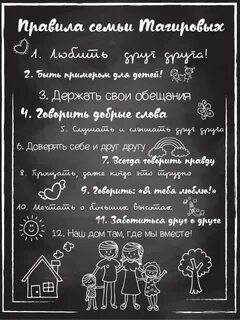 Правила семьи Тагировых
1. Любить друг друга!
2. Быть примером для детей!
3. Держать свои обещания
4. Говорить добрые слова
5. Слушать и слышать друг друга
6. Доверять себе и друг другу
7. Всегда говорить правду
8. Прощать, даже когда это трудно
9. Говорить: «Я тебя люблю!»
10. Мечтать о больших высотах
11. Заботиться друг о друге
12. Наш дом там, где мы вместе!